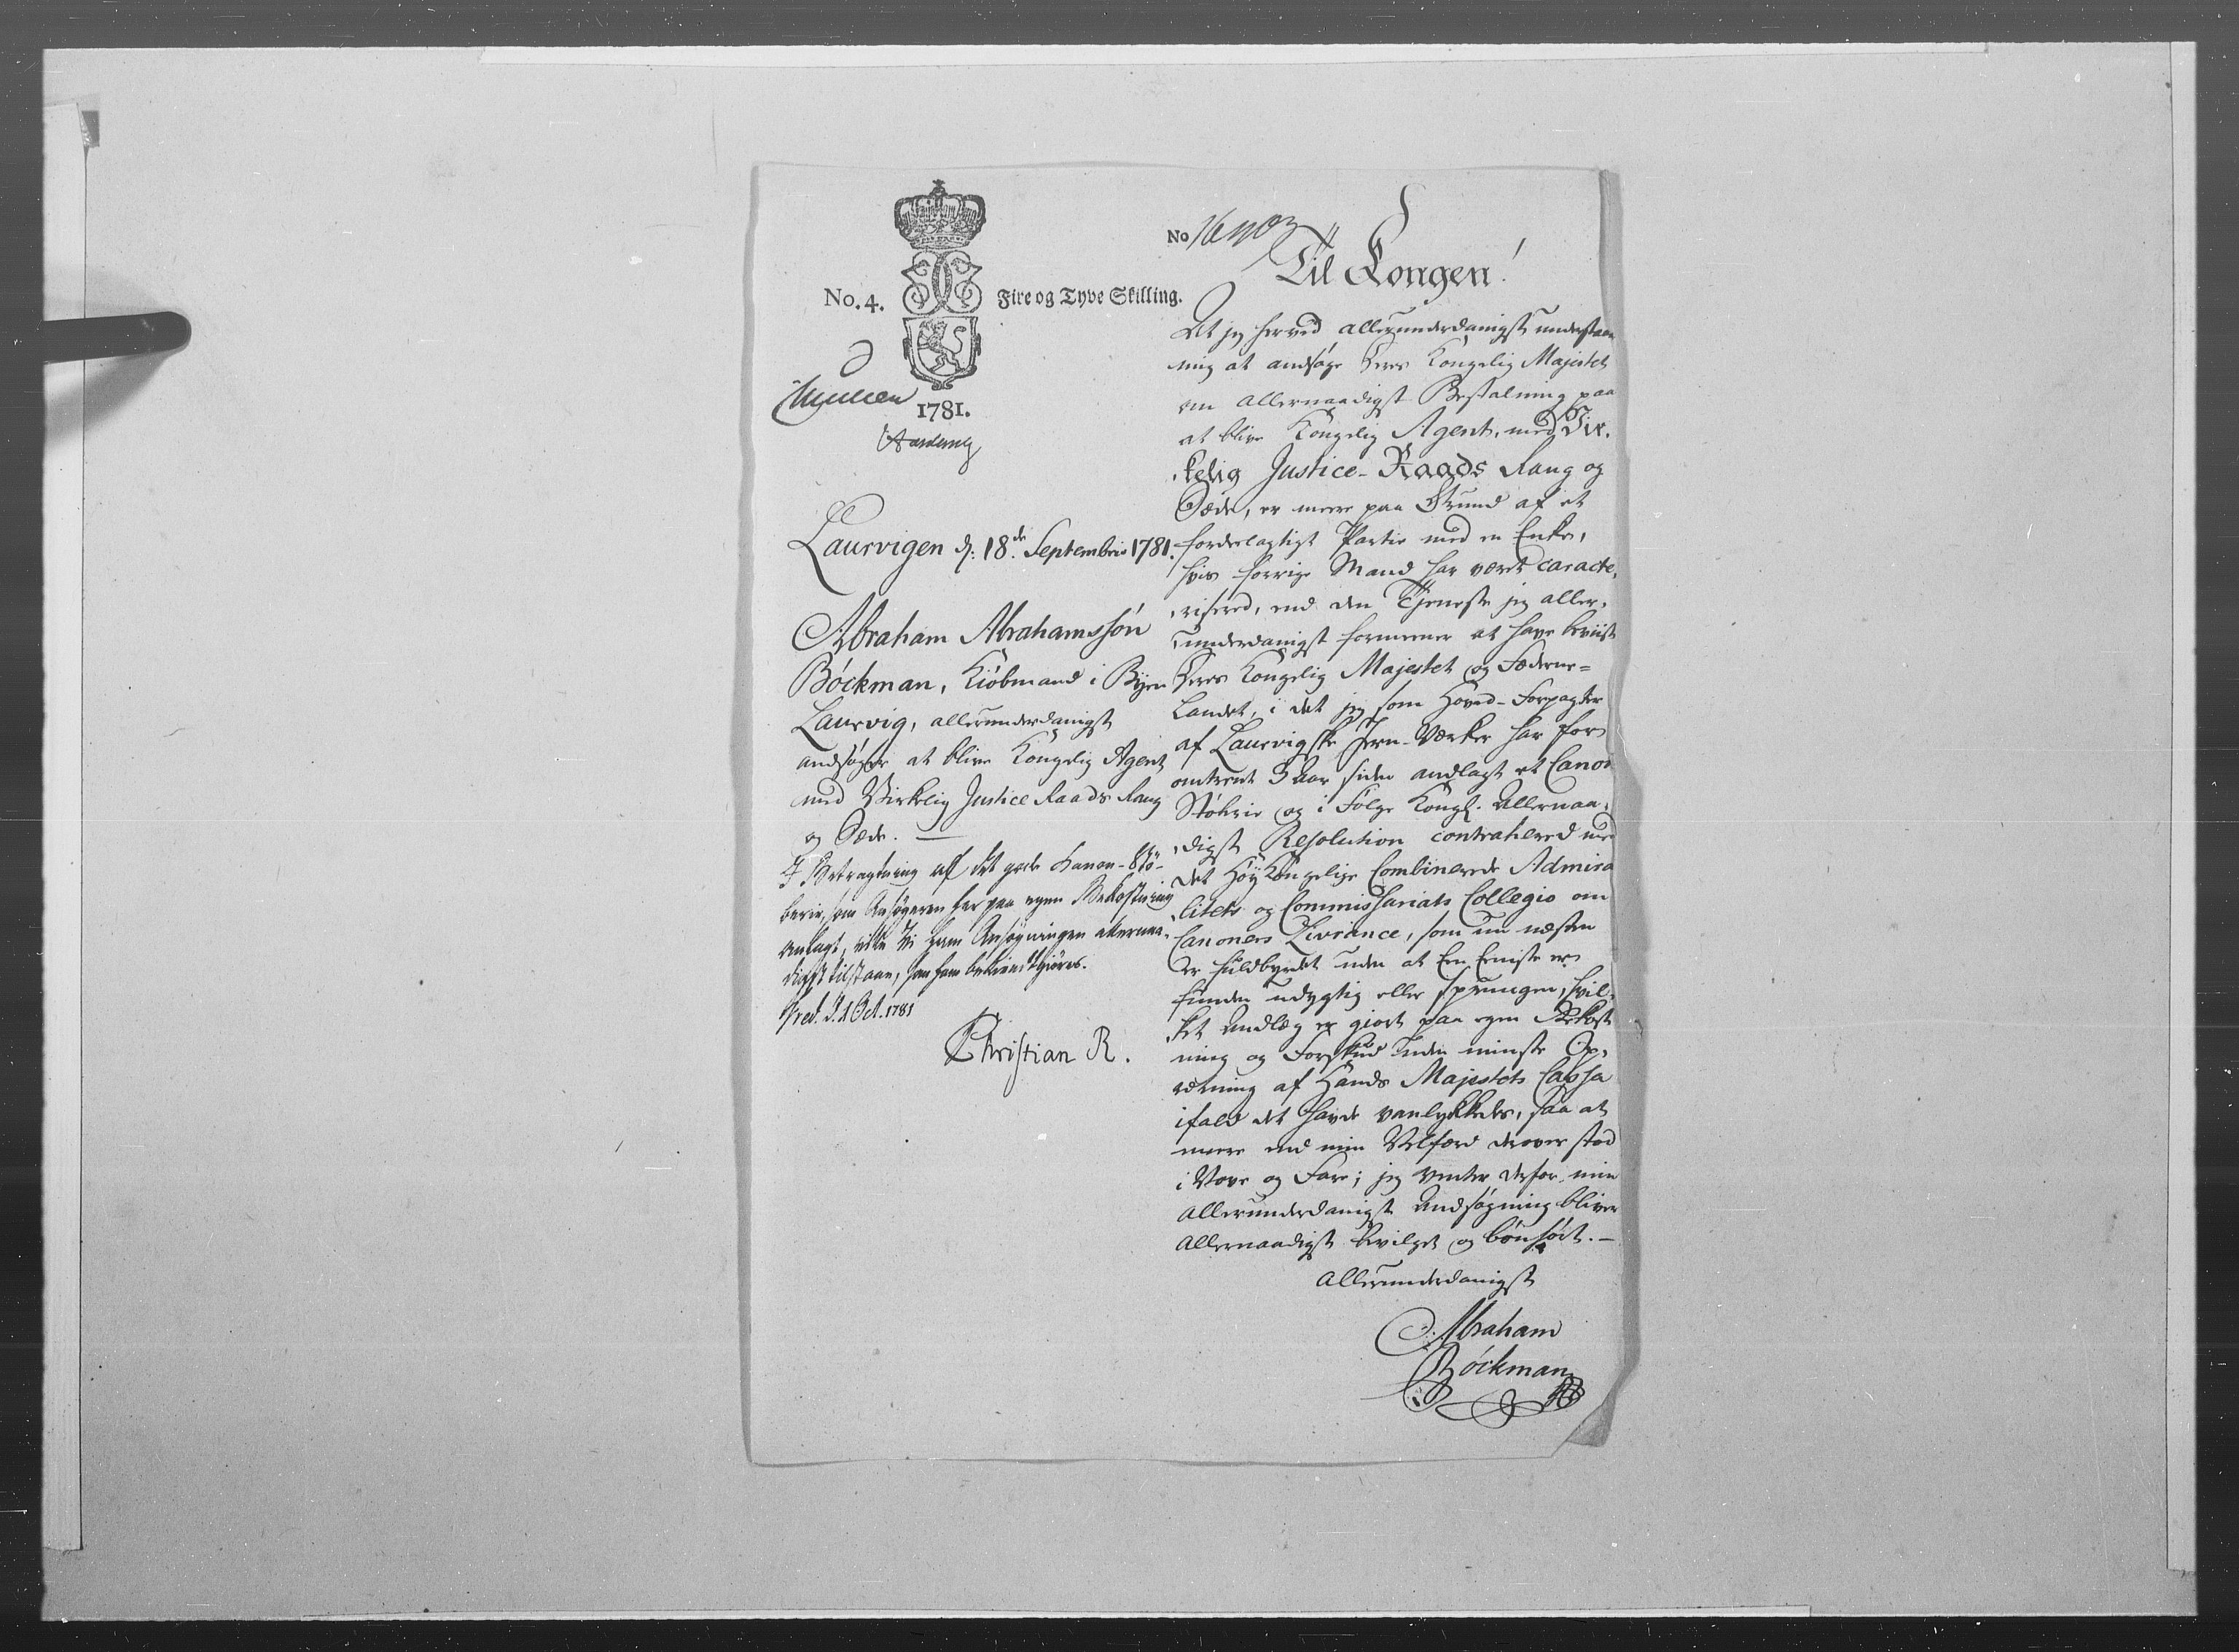 No. 4.
Fire og Tyve Skilling.
1781.
Laurvigen d: 18de Septembris 1781.
Abraham Abrahamssön
Böckman, Kiöbmand i Byen
Laurvig, allerunderdanigst
andsøger at blive Kongelig Agent
med Virkelig Justice Raads Rang
og Sæde.
I Betragtning af det gode Kanon-Stø-
berie, som Ansøgeren har paa egen Bekostning
anlagt, ville Vi ham Ansøgningen allernaa-
digst tilstaae, som ham bekiendtgiøres.
Fred. d. 1 Oct. 1781
Christian R.
No
Til Kongen!
At jeg herved allerunderdanigst understaaer
mig at andsøge Deres Kongelig Majestet
om allernaadigst Bestalning paa
at blive Kongelig Agent, med Vir-
kelig Justice-Raads Rang og
Sæde, er meere paa Grund af et
fordeelagtigt Partie med en Enke,
hvis forrige Mand har været caracte-
risered, end den Tjeneste jeg aller-
underdanigst formeener at have beviist
Deres Kongelig Majestet og Føderne-
Landet, i det jeg som Hoved-Forpagter
af Laurvigske Jern-Værker har for
omtrent 3 Aar siden andlagt et Canon
Støberie og i Følge Kongl. Allernaa-
digst Resolution contrahered med
det Høy Kongelige Combinerede Admira
litets og Commissariats Collegio om
Canoners Livrance, som nu næsten
er fuldbyrdet uden at Een Eeniste er
funden udygtig eller sprungen, hvil-
ket Andlæg er giort paa egen Bekost
ning og Forskud uden minste Op-
retning af Hands Majestets Cassa
ifald det havde vanlykkedes, saa at
meere end min Velfærd derover stod
i Vove og Fare; jeg venter derfor min
allerunderdanigste Andsøgning bliver
allernaadigst bevilget og bönhört.
allerunderdanigst
Abraham
Böckman